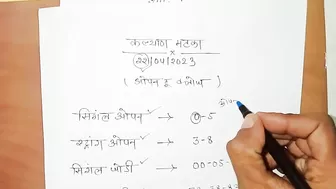 कल्याण मटका
×
22/04/2023
( ओपन टू क्लोज )
सिंगल ओपन ✓ → 0-5
स्ट्रांग ओपन ✓ → 3-8
सिंगल जोडी ✓ → 00-05-